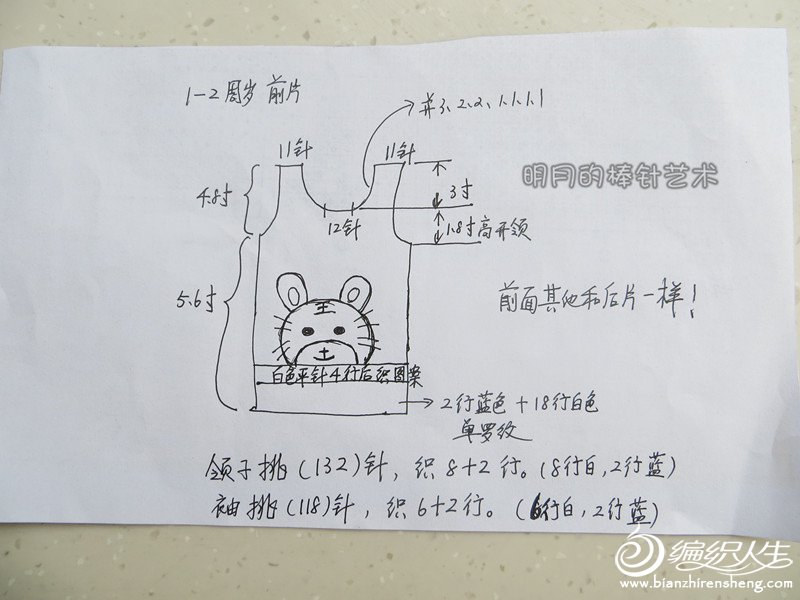 1-2周岁 前片
并3、2、2、1、1、1、1
11针
11针
明月的棒针艺术
4.8寸
3寸
12针
1.8寸高开领
5.6寸
前面其他和后片一样!
王
白色平针4行后织图案
2行蓝色+18行白色
单罗纹
领子挑(132)针，织8+2行。(8行白，2行蓝)
袖挑(118)针，织6+2行。(6行白，2行蓝)
编织人生
www.bianzhirensheng.com